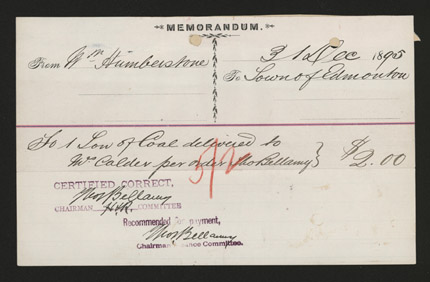 MEMORANDUM.
From Wm Humberstone
31 Dec 1895
To Town of Edmonton
To 1 Ton of Coal delivered to
Mrs Calder per order Thos Bellamy } $2.00
CERTIFIED CORRECT,
Thos Bellamy
CHAIRMAN COMMITTEE
Recommended for payment,
Thos Bellamy
Chairman Finance Committee.